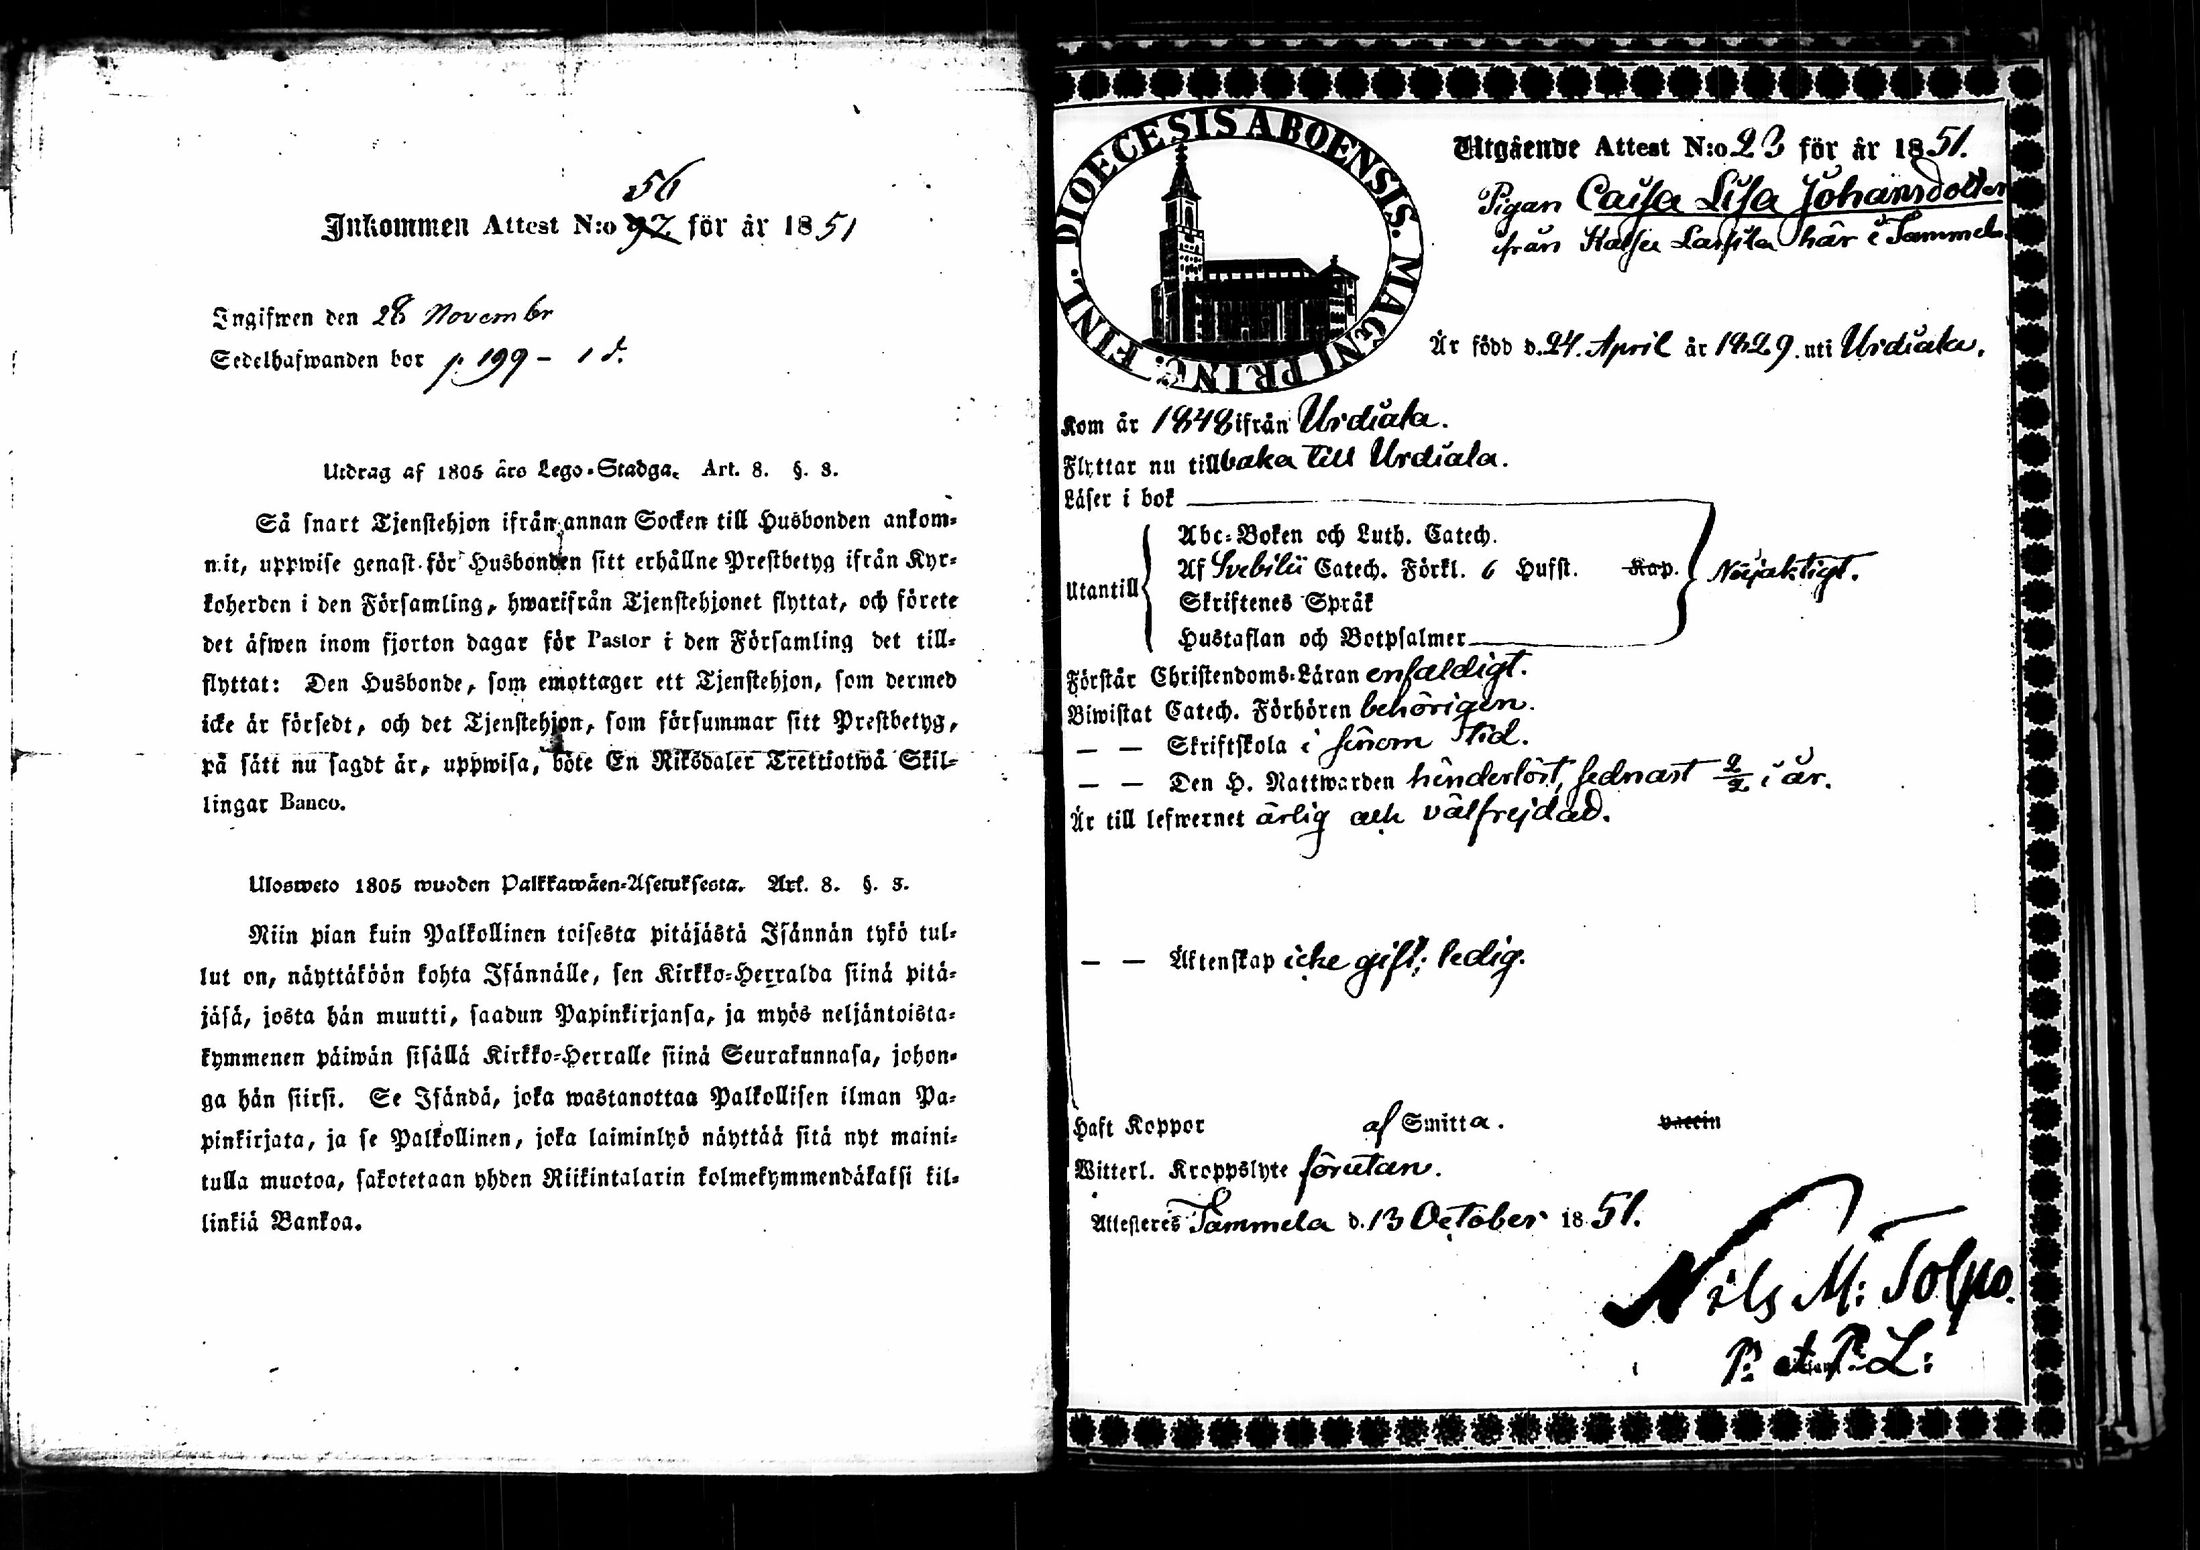 56
Inkommen Attest N:o 97. för år 1851
Ingifwen den 28 Novembr
Sedelhafwanden bor p. 199 – 1 d.
Utdrag af 1805 års Lego-Stadga. Art. 8. §. 8.
Så snart Tjenstehjon ifrån annan Socken till Husbonden ankom-
mit, uppwise genast för Husbonden sitt erhållne Prestbetyg ifrån Kyr-
koherden i den Församling, hwarifrån Tjenstehjonet flyttat, och förete
det äfwen inom fjorton dagar för Pastor i den Församling det till-
flyttat: Den Husbonde, som emottager ett Tjenstehjon, som dermed
icke är försedt, och det Tjenstehjon, som försummar sitt Prestbetyg,
på sätt nu sagdt är, uppwisa, böte En Riksdaler Trettiotwå Skil-
lingar Banco.
Ulosweto 1805 wuoden Palkkawäen-Asetuksesta. Art. 8. §. 8.
Niin pian kuin Palkollinen toisesta pitäjästä Isännän tykö tul-
lut on, näyttäköön kohta Isännälle, sen Kirkko-Herralda siinä pitä-
jäsä, josta hän muutti, saadun Papinkirjansa, ja myös neljäntoista-
kymmenen päiwän sisällä Kirkko-Herralle siinä Seurakunnasa, johon-
ga hän siirsi. Se Isändä, joka wastanottaa Palkollisen ilman Pa-
pinkirjata, ja se Palkollinen, joka laiminlyö näyttää sitä nyt maini-
tulla muotoa, sakotetaan yhden Riikintalarin kolmekymmendäkaksi kil-
linkiä Bankoa.
DIOECESIS ABOENSIS. MAGNI PRINC. FINL.
Utgående Attest N:o 23 för år 1851.
Pigan Caisa Lisa Johansdotter
från Kalju Lassila här i Tammela
Är född d. 24. April år 1829. uti Urdiala.
Kom år 1848 ifrån Urdiala.
Flyttar nu tillbaka till Urdiala.
Läser i bok
Abc-Boken och Luth. Catech.
Utantill Af Svebilii Catech. Förkl. 6 Hufst. Kap. Nöjaktigt.
Skriftenes Språk
Hustaflan och Botpsalmer
Förstår Christendoms-Läran enfaldigt.
Biwistat Catech. Förhören behörigen.
— — Skriftskola i sinom tid.
— — Den H. Nattwarden hinderlöst, sednast 2/2 i år.
Är till lefwernet ärlig och välfrejdad.
— — Äktenskap icke gift; ledig.
Haft Koppor af Smitta. vaccin
Witterl. Kroppslyte förutan.
Attesteres Tammela d. 13 October 1851.
Nils M: Tolpo.
P. et P: L: